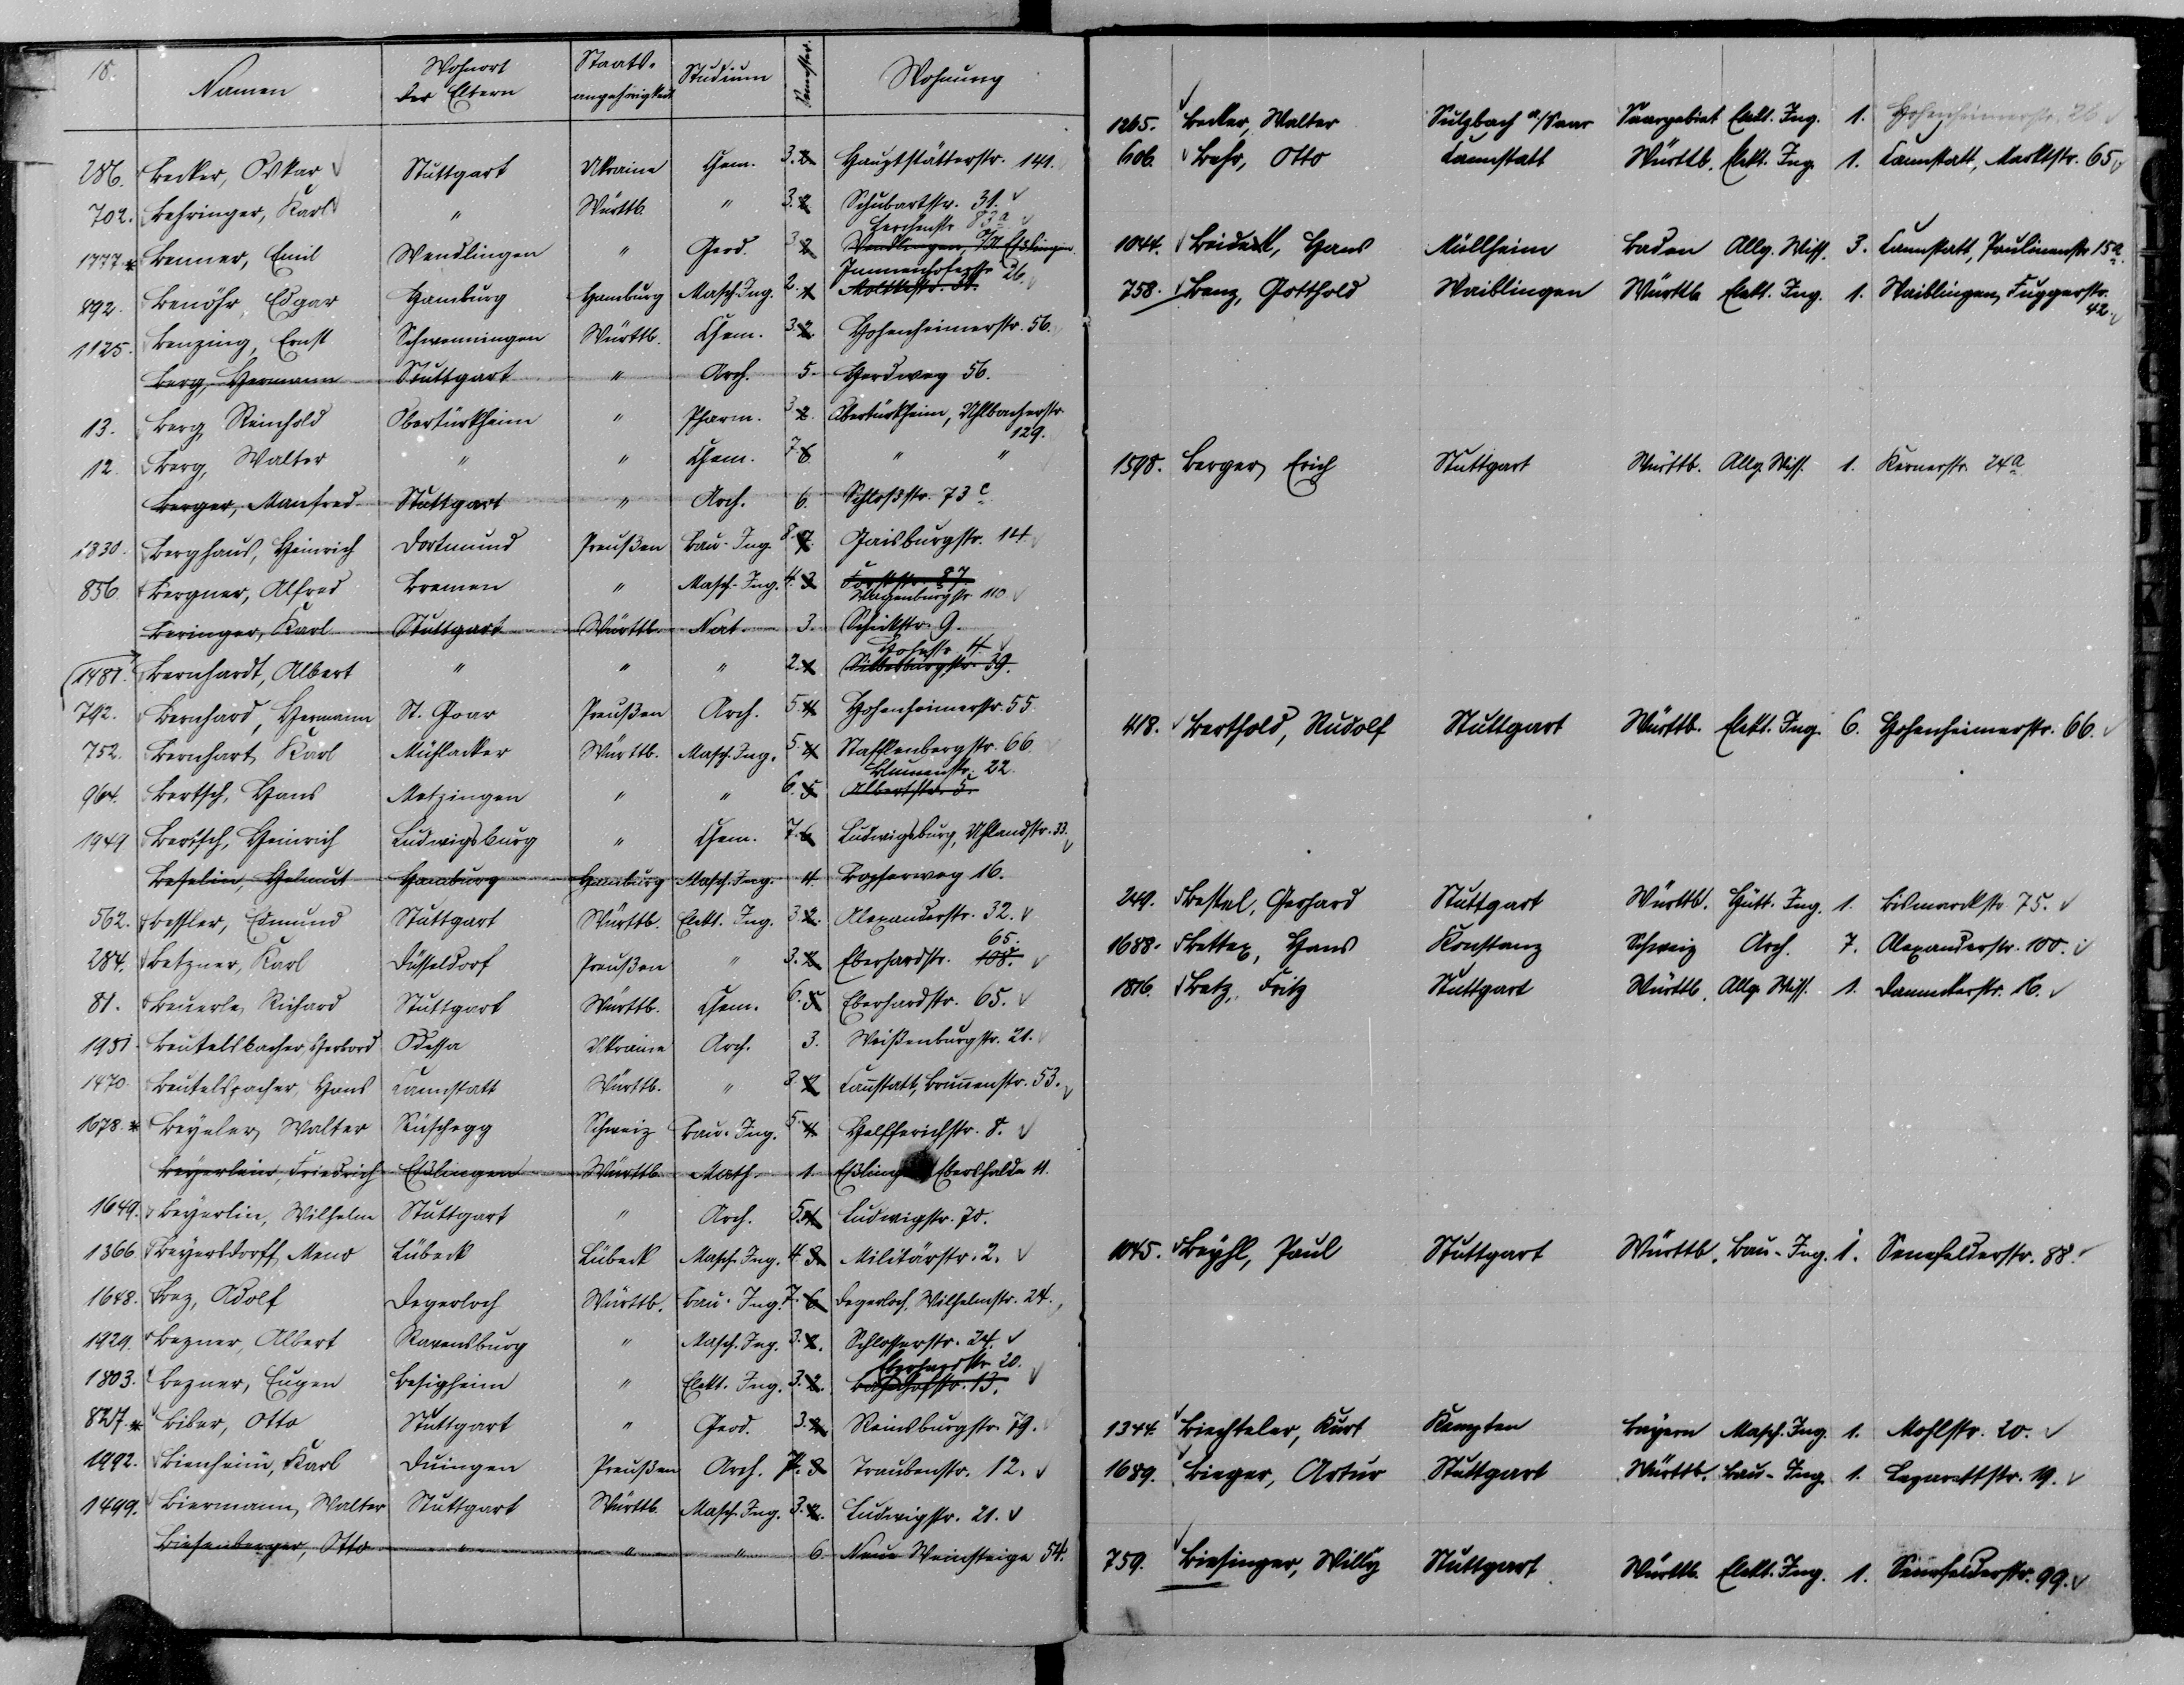 18.
Namen Wohnort der Eltern Staats-angehörigkeit Studium Semester Wohnung
286. Becker, Oskar Stuttgart Ukraine Chem. 3. 2. Hauptstätterstr. 141.
702. Behringer, Karl " Württb. " 3. 2. Schubartstr. 31.
Lerchenstr. 83a
1777 * Benner, Emil Wendlingen " Geod. 3 2 Wendlingen, O/A Eßlingen.
Immenhoferstr. 26.
892. Benöhr, Edgar Hamburg Hamburg Masch.-Ing. 2. 1
1125. Benzing, Ernst Schwenningen Württb. Chem. 3. 2. Hohenheimerstr. 56.
Berg, Hermann Stuttgart " Arch. 5. Herdweg 56.
13. Berg, Reinhold Obertürkheim " Pharm. 3 2. Obertürkheim, Uhlbacherstr.
129.
12. Berg, Walter " " Chem. 7 6. " "
Berger, Manfred Stuttgart " Arch. 6. Schloßstr. 73 c.
1830. Berghaus, Heinrich Dortmund Preußen Bau-Ing. 8. 7. Gaisburgstr. 14.
856. Bergner, Alfred Bremen " Masch-Ing. 4. 3 Forststr. 87.
Wagenburgstr. 110
Beringer, Karl Stuttgart Württb. Nat. 3. Schickstr. 9.
Hohestr. 4.
1481. Bernhardt, Albert " " " 2. 1 Silberburgstr. 39.
792. Bernhard, Hermann St. Goar Preußen Arch. 5. 4 Hohenheimerstr. 55.
752. Bernhart, Karl Mühlacker Württb. Masch.-Ing. 5. 4 Stafflenbergstr. 66
Blumenstr. 22.
964. Bertsch, Hans Metzingen " " 6. 5 Albertstr. 5.
1949 Bertsch, Heinrich Ludwigsburg " Chem. 7. 6 Ludwigsburg, Uhlandstr. 33.
Beselin, Helmut Hamburg Hamburg Masch.-Ing. 4. Bopserweg 16.
562. Bessler, Edmund Stuttgart Württb. Elekt. Ing. 3. 2. Alexanderstr. 32.
65.
284. Betzner, Karl Düsseldorf Preußen " 3. 2. Eberhardstr. 108.
81. Beuerle, Richard Stuttgart Württb. Chem. 6. 5 Eberhardstr. 65.
1951. Beutelsbacher, Odessa Ukraine Arch. 3. Weißenburgstr. 21.
1470. Beutelspacher, Hans Cannstatt Württb. " 3. 2 Cannstatt, Brunnenstr. 53.
1678. * Beyeler, Walter Rüschegg Schweiz Bau-Ing. 5. 4 Helfferichstr. 8.
Beyerlein, Friedrich Eßlingen Württb. Math. 1. Eßlingen Ebershalde 11.
1649. Beyerlin, Wilhelm Stuttgart " Arch. 5. 4 Ludwigstr. 70.
1366. Beyersdorff, Meno Lübeck Lübeck Masch.-Ing. 4. 3. Militärstr. 2.
1648. Bez, Adolf Degerloch Württb. Bau-Ing. 7. 6 Degerloch, Wilhelmstr. 24.
1929. Bezner, Albert Ravensburg " Masch.-Ing. 3. 2. Schlosserstr. 24.
Eberhardstr. 20.
1803. Bezner, Eugen Besigheim " Elekt. Ing. 3. 2. Bahnhofstr. 13.
827. * Biber, Otto Stuttgart " Geod. 3. 2. Reinsburgstr. 79.
1992. Bienheim, Karl Duingen Preußen Arch. 7. 8 Traubenstr. 12.
1499. Biermann, Walter Stuttgart Württb. Masch.-Ing. 3. 2. Ludwigstr. 21.
Biesenberger, Otto " " " 6. Neue Weinsteige 54.
1265. Becker, Walter Sulzbach a./Saar Saargebiet Elekt. Ing. 1. Hohenheimerstr. 28
606. Behr, Otto Cannstatt Württb. Elekt. Ing. 1. Cannstatt, Marktstr. 65
1044. Hans Müllheim Baden Allg. Wiss. 3. Cannstatt, Paulinenstr. 15a.
758. Benz, Gotthold Waiblingen Württb. Elekt. Ing. 1. Waiblingen, Fuggerstr.
42.
1598. Berger, Erich Stuttgart Württb. Allg. Wiss. 1. Kernerstr. 24a
418. Berthold, Rudolf Stuttgart Württb. Elekt. Ing. 6. Hohenheimerstr. 66.
249. Bestel, Gerhard Stuttgart Württb. Hütt. Ing. 1. Bismarckstr. 75.
1688. Bettex, Hans Konstanz Schweiz Arch. 7. Alexanderstr. 100.
1816. Betz, Fritz Stuttgart Württb. Allg. Wiss. 1. Danneckerstr. 16.
1045. Beyhl, Paul Stuttgart Württb. Bau-Ing. 1. Senefelderstr. 88.
1344. Biechteler, Kurt Kempten Bayern Masch.-Ing. 1. Mohlstr. 20.
1689. Bieger, Artur Stuttgart Württb. Bau-Ing. 1. Lazarettstr. 19.
759. Biesinger, Willy Stuttgart Württb. Elekt. Ing. 1. Senefelderstr. 99.